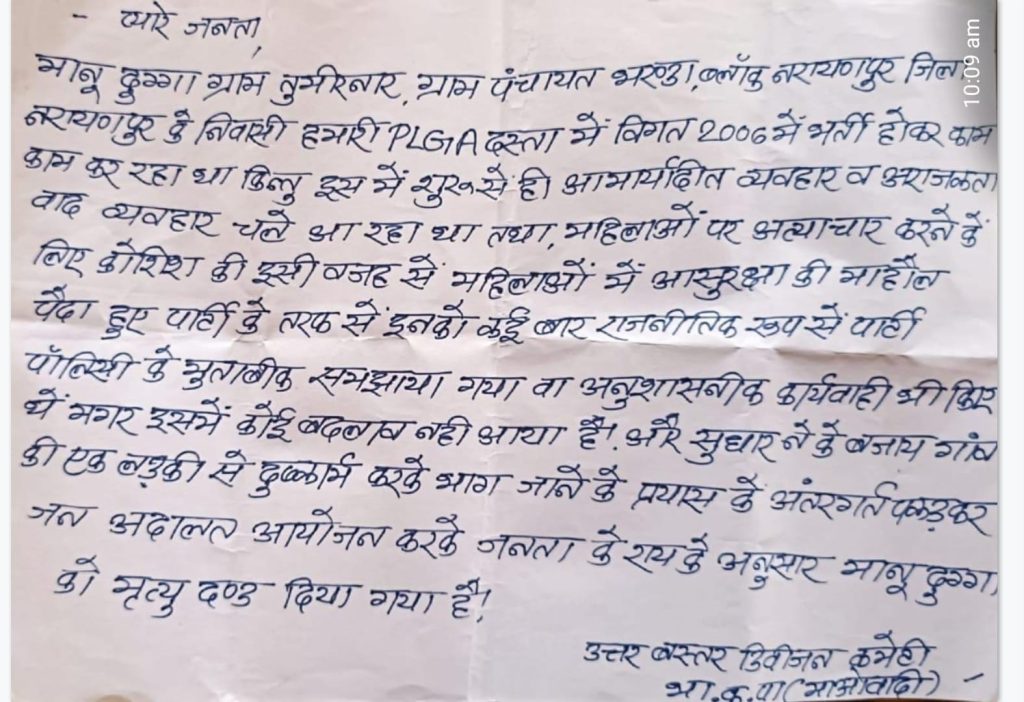 - प्यारे जनता,
मानू दुग्गा ग्राम तुमीरनार, ग्राम पंचायत भरण्डा, ब्लॉक नरायणपुर जिला
नरायणपुर के निवासी हमारी PLGA दस्ता में विगत 2006 में भर्ती होकर काम
काम कर रहा था किन्तु इस में शुरू से ही आमार्यादीत व्यवहार व अराजकता
वाद व्यवहार चले आ रहा था तथा, महिलाओं पर अत्याचार करने के
लिए कोशिश की इसी वजह सें महिलाओं में आसुरक्षा की माहौल
पैदा हुए पार्टी के तरफ सें इनको कई बार राजनीतिक रूप सें पार्टी
पॉलिसी के मुताबीक समझाया गया वा अनुशासनीक कार्यवाही भी किए
थें मगर इसमें कोई बदलाव नही आया है! और सुधार ने के बजाय गांव
की एक लड़की से दुष्कार्म करके भाग जाने के प्रयास के अंतरगर्त पकड़कर
जन अदालत आयोजन करके जनता के राय के अनुसार मानू दुग्गा
को मृत्यु दण्ड दिया गया है!
उत्तर बस्तर डिवीजन कमेटी
भा.क.पा (माओवादी) -
10:09 am